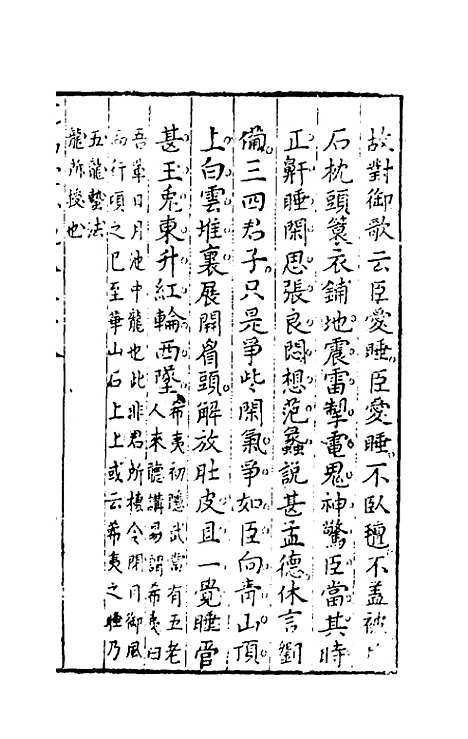 故對御歌云臣愛睡臣愛睡不臥氊不盖被片
石枕頭簑衣鋪地震雷掣電鬼神驚臣當其時
正鼾睡閑思張良悶想范蠡說甚孟德休言劉
備三四君子只是爭些閑氣爭如臣向青山頂
上白雲堆裏展開眉頭解放肚皮且一覺睡管
甚玉兎東升紅輪西墜希夷初隱武當有五老
人來聽講易謂希夷曰
吾輩日月池中龍也此非君所棲令閉目御風
而行頃之已至華山石上上或云希夷之睡乃
五龍蟄法
龍所授也